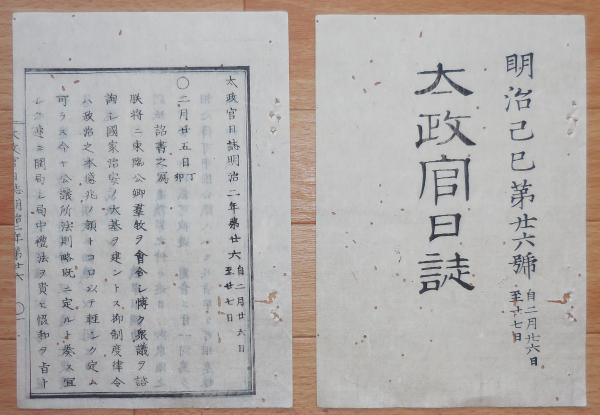 明治己巳第廿六號
自二月廿六日
至廿七日
太政官日誌
太政官日誌明治二年第廿六
自二月廿六日
至廿七日
〇二月廿五日丁卯
詔書之寫
朕將ニ東臨公卿羣牧ヲ會合シ博ク衆議ヲ諮
詢シ國家治安ノ大基ヲ建ントス抑制度律令
ハ政治之本億兆ノ頼トコロ以テ輕シク定ム
可ラス今ヤ公議所法則略既ニ定ルト奏ス宜
シク速ニ開局シ局中禮法ヲ貴ヒ協和ヲ旨ト
太政官日誌明治二年第廿六